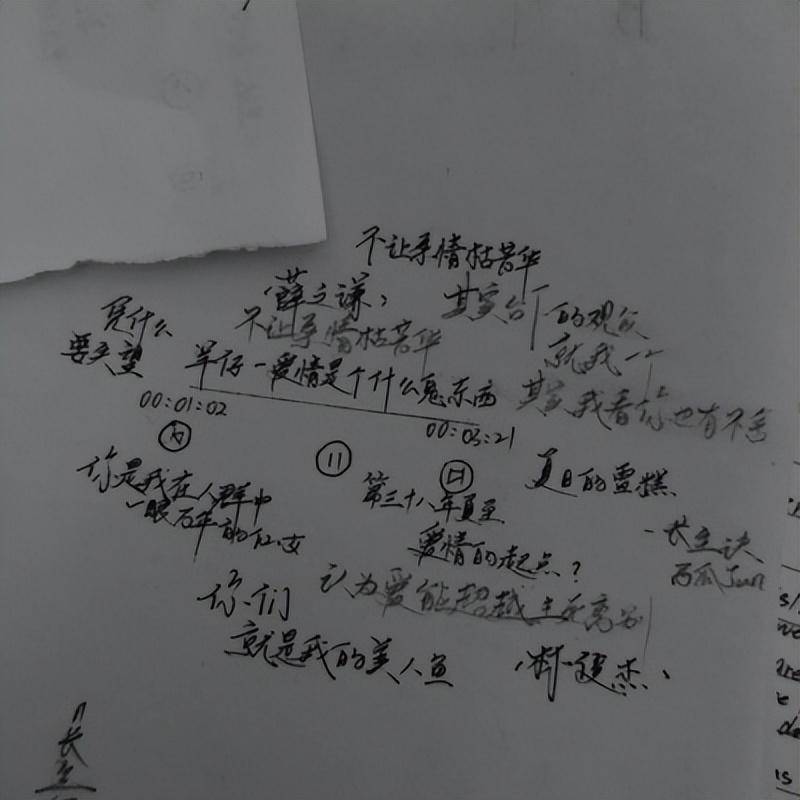 不让柔情枯昔华
薛之谦
凭什么
要失望
不让柔情枯昔华
其实台下的观众
就我一个
早仔一爱情是个什么鬼东西
其实我看你也有不舍
00:01:02
00:03:21
你是我在人群中
一眼万年的
第三十八年夏至
夏日的雪糕
爱情的起点?
一长生诀
西瓜Jun
你们
认为爱能超越生死离别
就是我的美人鱼
林俊杰
长生